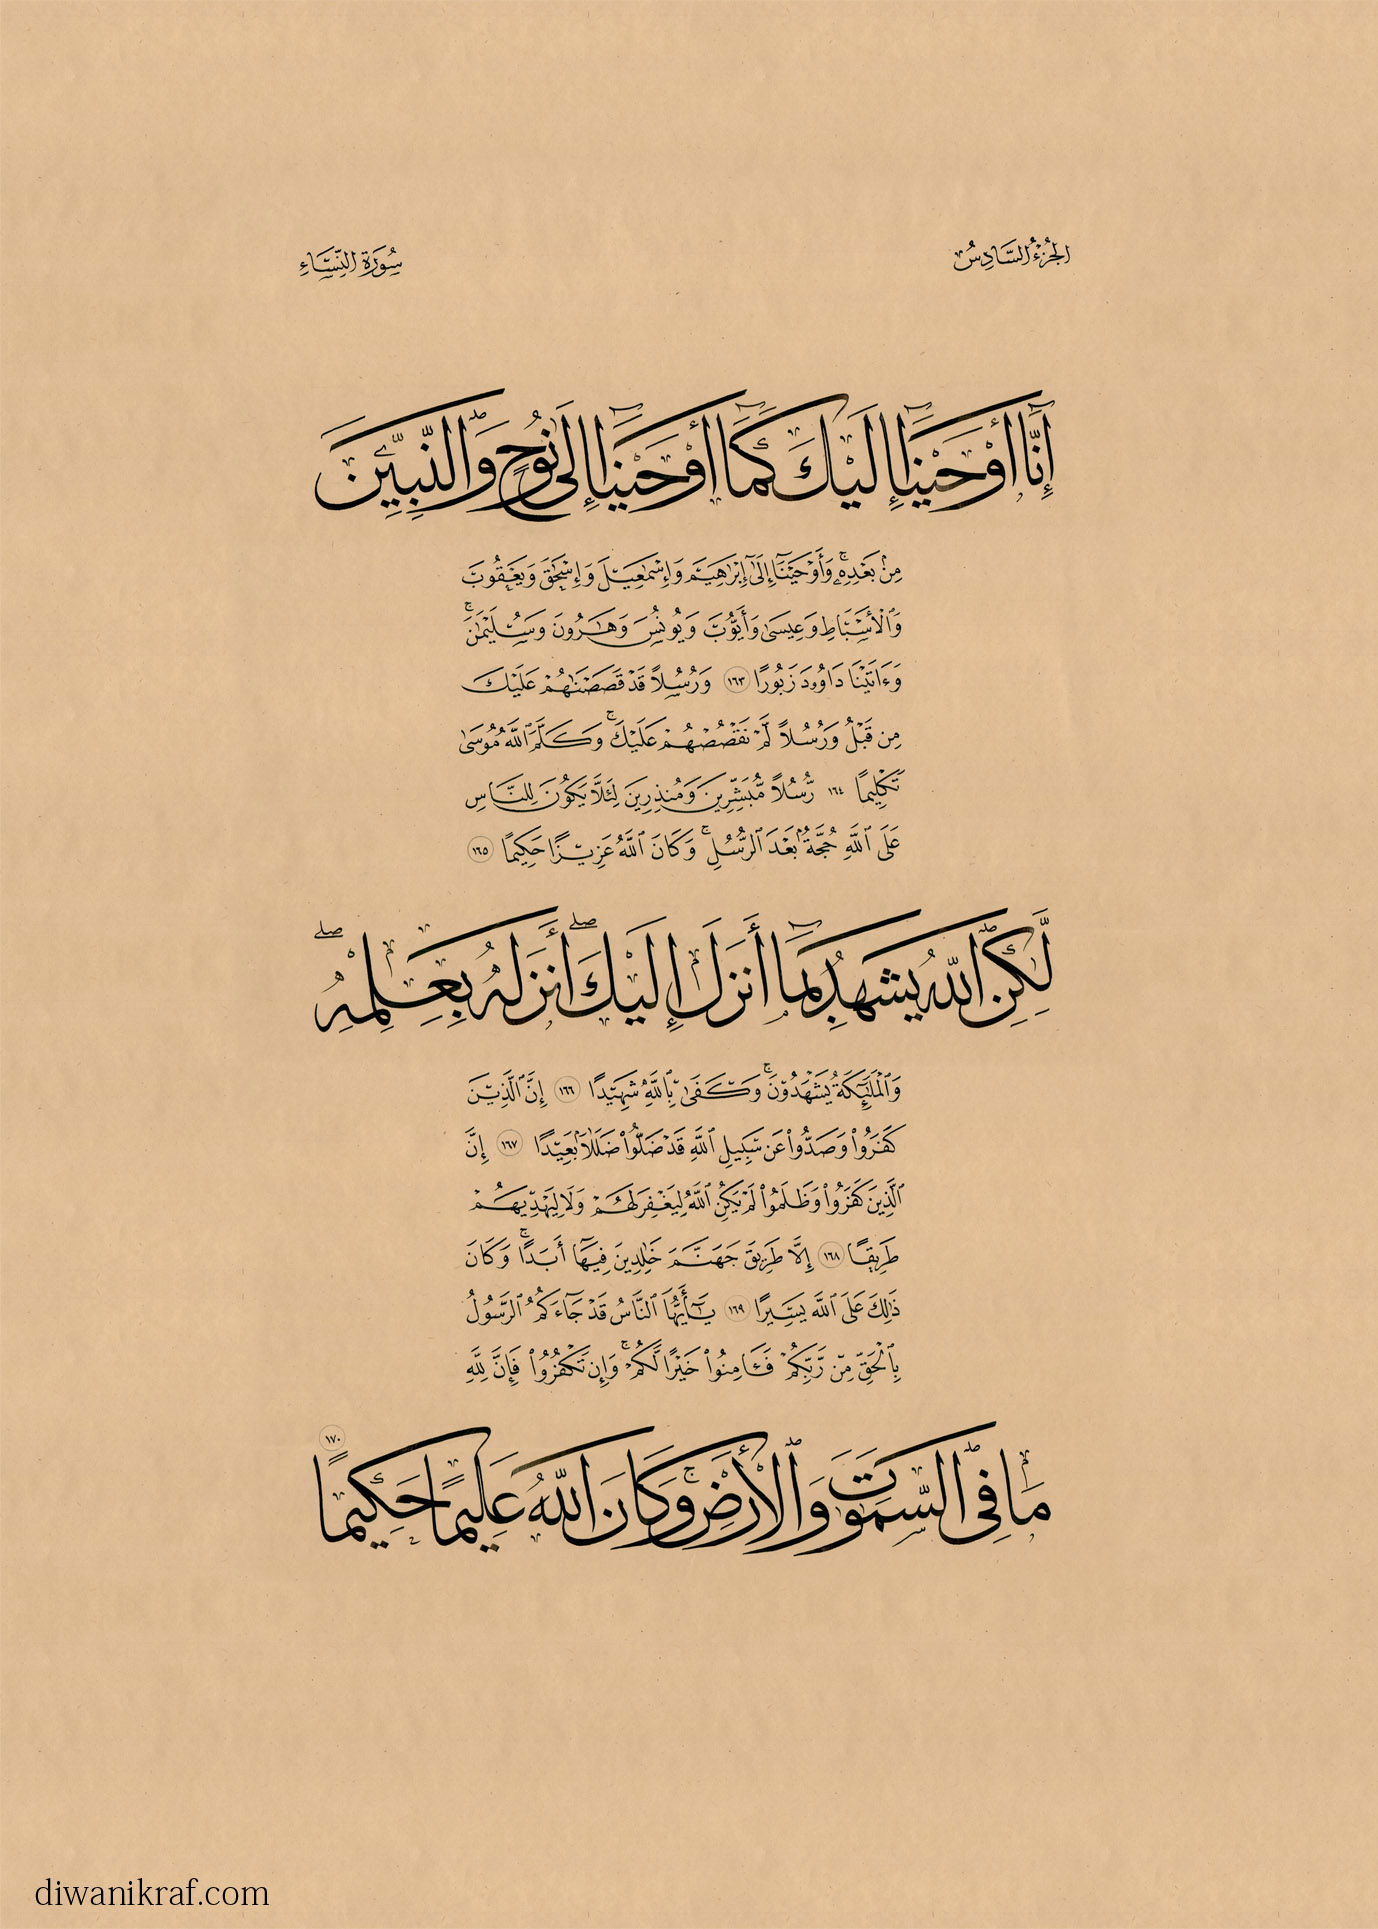 الجُزْءُ السَّادِسُ
سُورَةُ النِّسَاءِ
إِنَّا أَوْحَيْنَا إِلَيْكَ كَمَا أَوْحَيْنَا إِلَى نُوحٍ وَالنَّبِيِّينَ
مِنْ بَعْدِهِ ۚ وَأَوْحَيْنَا إِلَىٰ إِبْرَاهِيمَ وَإِسْمَاعِيلَ وَإِسْحَاقَ وَيَعْقُوبَ
وَٱلْأَسْبَاطِ وَعِيسَىٰ وَأَيُّوبَ وَيُونُسَ وَهَارُونَ وَسُلَيْمَٰنَ ۚ
وَءَاتَيْنَا دَاوُۥدَ زَبُورًا ١٦٣ وَرُسُلًا قَدْ قَصَصْنَٰهُمْ عَلَيْكَ
مِن قَبْلُ وَرُسُلًا لَّمْ نَقْصُصْهُمْ عَلَيْكَ ۚ وَكَلَّمَ ٱللَّهُ مُوسَىٰ
تَكْلِيمًا ١٦٤ رُّسُلًا مُّبَشِّرِينَ وَمُنذِرِينَ لِئَلَّا يَكُونَ لِلنَّاسِ
عَلَى ٱللَّهِ حُجَّةٌۢ بَعْدَ ٱلرُّسُلِ ۚ وَكَانَ ٱللَّهُ عَزِيزًا حَكِيمًا ١٦٥
لَّٰكِنِ ٱللَّهُ يَشْهَدُ بِمَا أَنزَلَ إِلَيْكَ ۖ أَنزَلَهُ بِعِلْمِهِ ۖ
وَٱلْمَلَٰٓئِكَةُ يَشْهَدُونَ ۚ وَكَفَىٰ بِٱللَّهِ شَهِيدًا ١٦٦ إِنَّ ٱلَّذِينَ
كَفَرُوا۟ وَصَدُّوا۟ عَن سَبِيلِ ٱللَّهِ قَدْ ضَلُّوا۟ ضَلَٰلًۢا بَعِيدًا ١٦٧ إِنَّ
ٱلَّذِينَ كَفَرُوا۟ وَظَلَمُوا۟ لَمْ يَكُنِ ٱللَّهُ لِيَغْفِرَ لَهُمْ وَلَا لِيَهْدِيَهُمْ
طَرِيقًا ١٦٨ إِلَّا طَرِيقَ جَهَنَّمَ خَٰلِدِينَ فِيهَآ أَبَدًا ۚ وَكَانَ
ذَٰلِكَ عَلَى ٱللَّهِ يَسِيرًا ١٦٩ يَٰٓأَيُّهَا ٱلنَّاسُ قَدْ جَآءَكُمُ ٱلرَّسُولُ
بِٱلْحَقِّ مِن رَّبِّكُمْ فَـَٔامِنُوا۟ خَيْرًا لَّكُمْ ۚ وَإِن تَكْفُرُوا۟ فَإِنَّ لِلَّهِ
مَا فِى ٱلسَّمَٰوَٰتِ وَٱلْأَرْضِ ۚ وَكَانَ ٱللَّهُ عَلِيمًا حَكِيمًا ١٧٠
diwanikraf.com